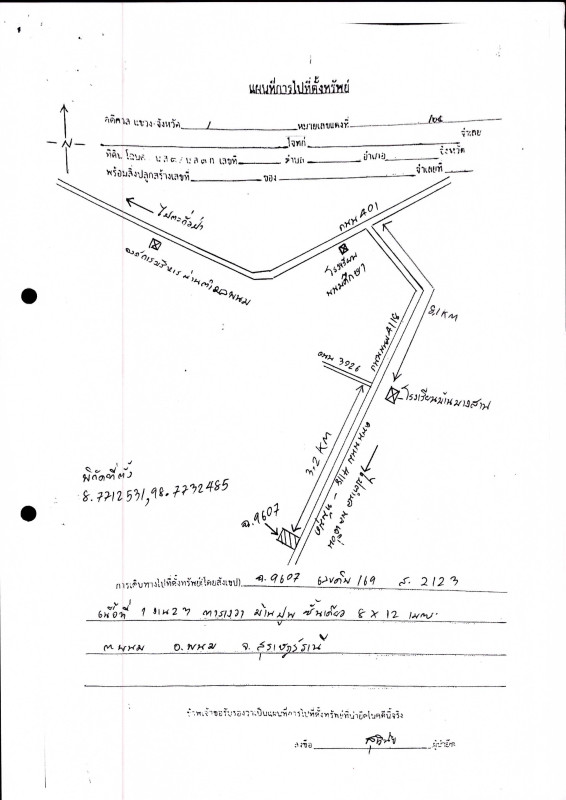 แผนที่การไปที่ตั้งทรัพย์
คดีศาล แขวง-จังหวัด 1 หมายเลขแดงที่
โจทก์ จำเลย
ที่ดิน โฉนด น.ส.๓/น.ส.๓ ก เลขที่ ตำบล อำเภอ จังหวัด
พร้อมสิ่งปลูกสร้างเลขที่ ของ จำเลยที่
N
ไปตะกั่วป่า
ถนน 401
องค์การบริหารส่วนตำบลพนม
โรงเรียน
พนมศึกษา
8.1 KM
ถนน 4118
ถนน 3926
โรงเรียนบ้านบางสาน
3.2 KM
ถนน 4118
พิกัดที่ตั้ง
8.7712531,98.7732485
ฉ.9607
การเดินทางไปที่ตั้งทรัพย์(โดยสังเขป) ฉ.9607 เลขดิน 169 ส. 2123
เนื้อที่ 1 งาน 23 ตารางวา บ้านปูนชั้นเดียว 8 x 12 เมตร
ต.พนม อ.พนม จ.สุราษฎร์ธานี
ข้าพเจ้าขอรับรองว่าเป็นแผนที่การไปที่ตั้งทรัพย์ที่นำยึดในคดีนี้จริง
ลงชื่อ ผู้นำยึด